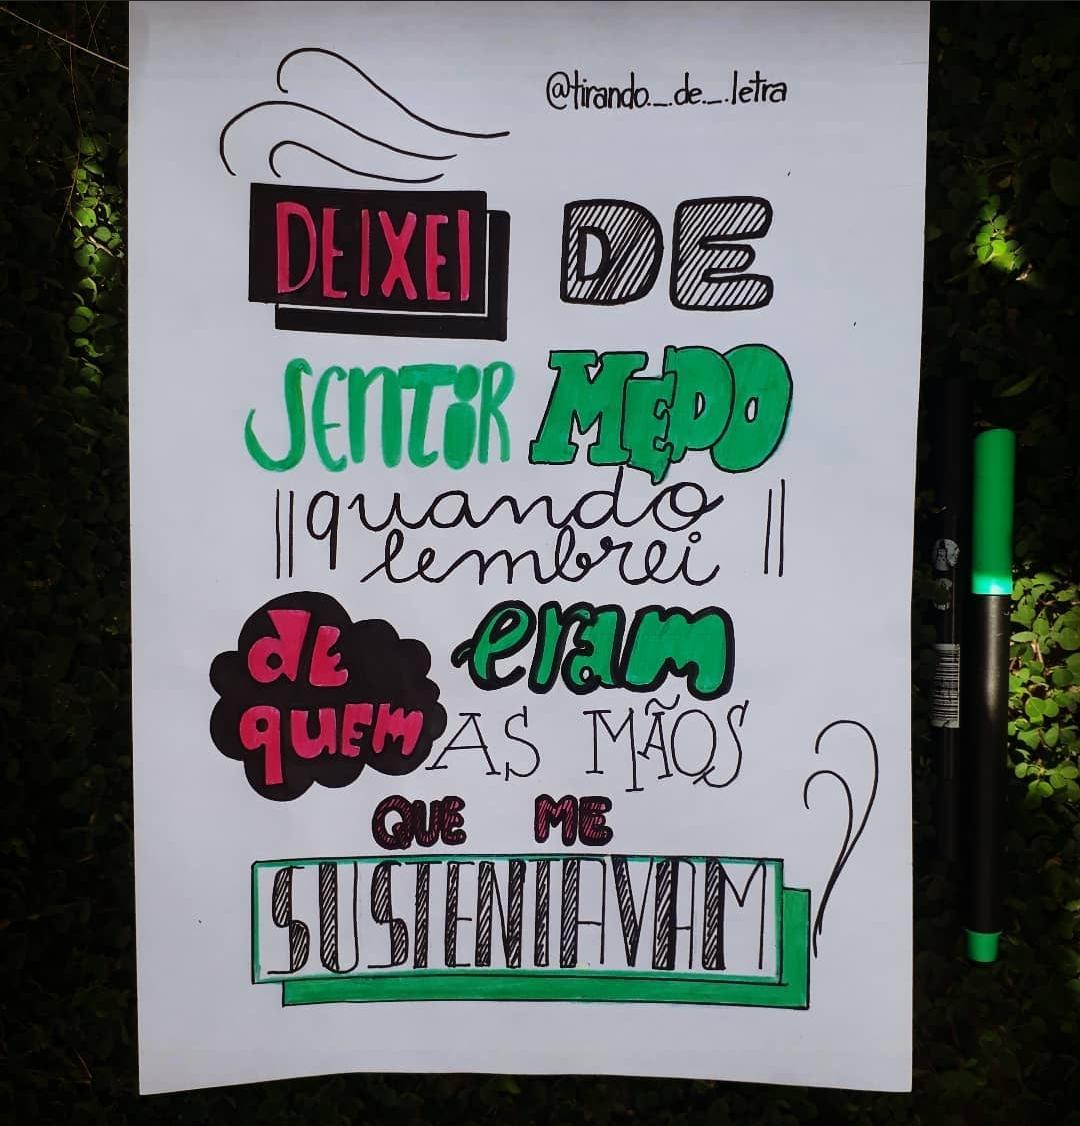 @tirando._.de._.letra
DEIXEI DE
SENTIR MEDO
quando
lembrei
de eram
quem AS MÃOS
QUE ME
SUSTENTAVAM